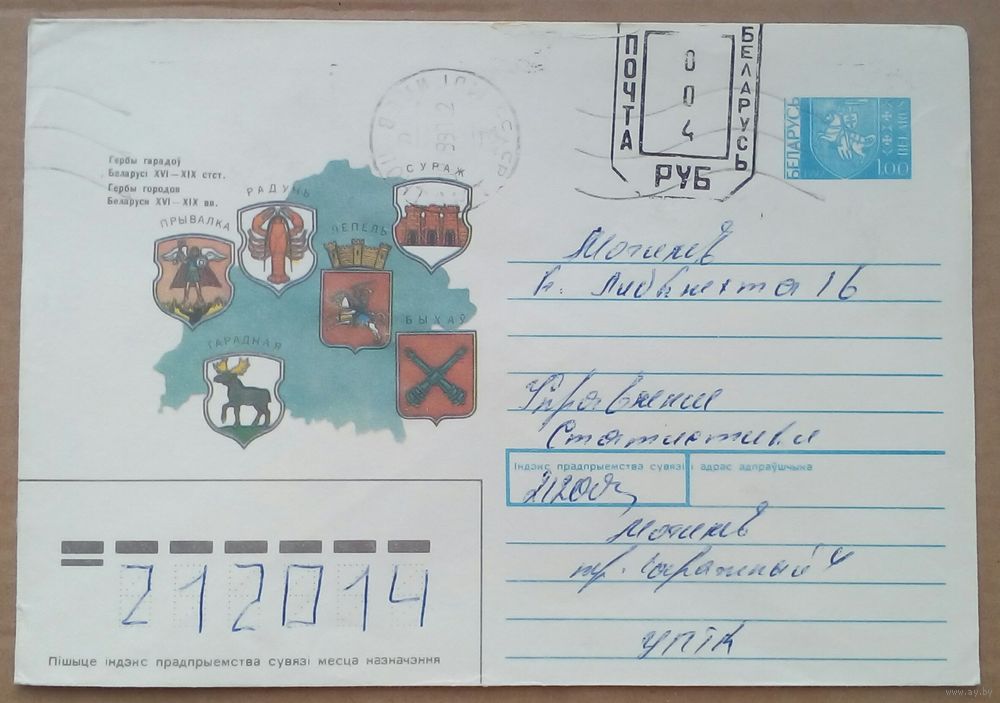 Гербы гарадоў
Беларусі XVI–XIX стст.
Гербы городов
Беларуси XVI–XIX вв.
ПРЫВАЛКА
РАДУНЬ
ЛЕПЕЛЬ
СУРАЖ
ГАРАДНАЯ
БЫХАЎ
ПОЧТА
БЕЛАРУСЬ
004
РУБ
БЕЛАРУСЬ
1.00
BELARUS
Могилев
К. Либкнехта 16
Управление
Статистики
Індэкс прадпрыемства сувязі і адрас адпраўшчыка
Могилев
УПТК
212014
Пішыце індэкс прадпрыемства сувязі месца назначэння
www.ay.by